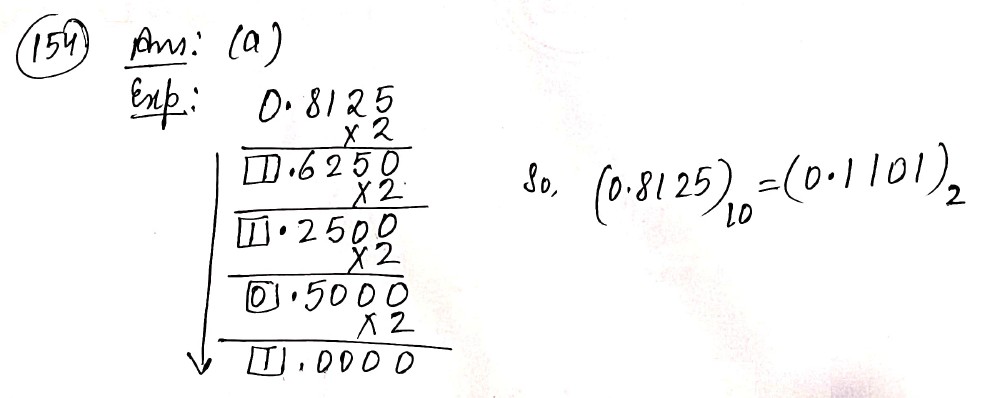 154 Ans: (a)
Exp:
0.8125
x 2
1.6250
x 2
1.2500
x 2
0.5000
x 2
1.0000
So, (0.8125)10 = (0.1101)2